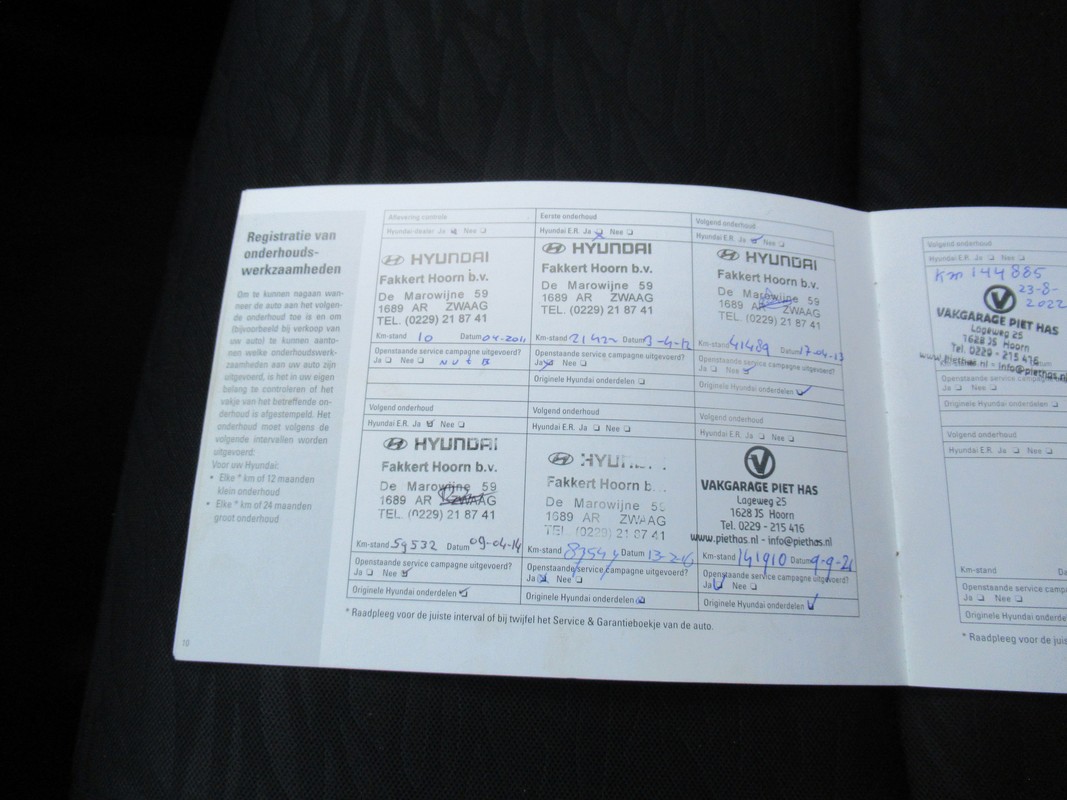 Registratie van
onderhouds-
werkzaamheden
Om te kunnen nagaan wan-
neer de auto aan het volgen-
de onderhoud toe is en om
(bijvoorbeeld bij verkoop van
uw auto) te kunnen aanto-
nen welke onderhoudswerk-
zaamheden aan uw auto zijn
uitgevoerd, is het in uw eigen
belang te controleren of het
vakje van het betreffende on-
derhoud is afgestempeld. Het
onderhoud moet volgens de
volgende intervallen worden
uitgevoerd:
Voor uw Hyundai:
• Elke * km of 12 maanden
klein onderhoud
• Elke * km of 24 maanden
groot onderhoud
10
Aflevering controle
Hyundai-dealer Ja Nee
HYUNDAI
Fakkert Hoorn b.v.
De Marowijne 59
1689 AR ZWAAG
TEL. (0229) 21 87 41
Km-stand 10 Datum 04-2011
Openstaande service campagne uitgevoerd?
Ja Nee
Eerste onderhoud
Hyundai E.R. Ja Nee
HYUNDAI
Fakkert Hoorn b.v.
De Marowijne 59
1689 AR ZWAAG
TEL. (0229) 21 87 41
Km-stand Datum 3-4-12
Openstaande service campagne uitgevoerd?
Ja Nee
Originele Hyundai onderdelen
Volgend onderhoud
Hyundai E.R. Ja Nee
HYUNDAI
Fakkert Hoorn b.v.
De Marowijne 59
1689 AR ZWAAG
TEL. (0229) 21 87 41
Km-stand 41489 Datum 17-04-13
Openstaande service campagne uitgevoerd?
Ja Nee
Originele Hyundai onderdelen
Volgend onderhoud
Hyundai E.R. Ja Nee
HYUNDAI
Fakkert Hoorn b.v.
De Marowijne 59
1689 AR ZWAAG
TEL. (0229) 21 87 41
Km-stand 59532 Datum 09-04-14
Openstaande service campagne uitgevoerd?
Ja Nee
Originele Hyundai onderdelen
Volgend onderhoud
Hyundai E.R. Ja Nee
HYU
Fakkert Hoorn b.
De Marowijne 59
1689 AR ZWAAG
TEL. (0229) 21 87 41
Km-stand Datum 13-2-16
Openstaande service campagne uitgevoerd?
Ja Nee
Originele Hyundai onderdelen
Volgend onderhoud
Hyundai E.R. Ja Nee
VAKGARAGE PIET HAS
Lageweg 25
1628 JS Hoorn
Tel. 0229 - 215 416
www.piethas.nl - info@piethas.nl
Km-stand 141910 Datum 9-9-21
Openstaande service campagne uitgevoerd?
Ja Nee
Originele Hyundai onderdelen
* Raadpleeg voor de juiste interval of bij twijfel het Service & Garantieboekje van de auto.
Volgend onderhoud
Hyundai E.R. Ja Nee
Km 144885
23-8-
2022
VAKGARAGE PIET HAS
Lageweg 25
1628 JS Hoorn
Tel. 0229 - 215 416
www.piethas.nl - info@piethas.nl
Openstaande service campagne
Ja Nee
Originele Hyundai onderdelen
Volgend onderhoud
Hyundai E.R. Ja Nee
Km-stand Da
Openstaande service campagne
Ja Nee
Originele Hyundai onderde
* Raadpleeg voor de juis